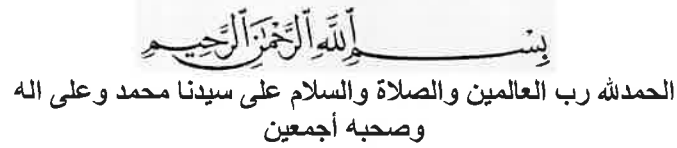 بِسْمِ اللَّهِ الرَّحْمَٰنِ الرَّحِيمِ
الحمدلله رب العالمين والصلاة والسلام على سيدنا محمد وعلى اله
وصحبه أجمعين